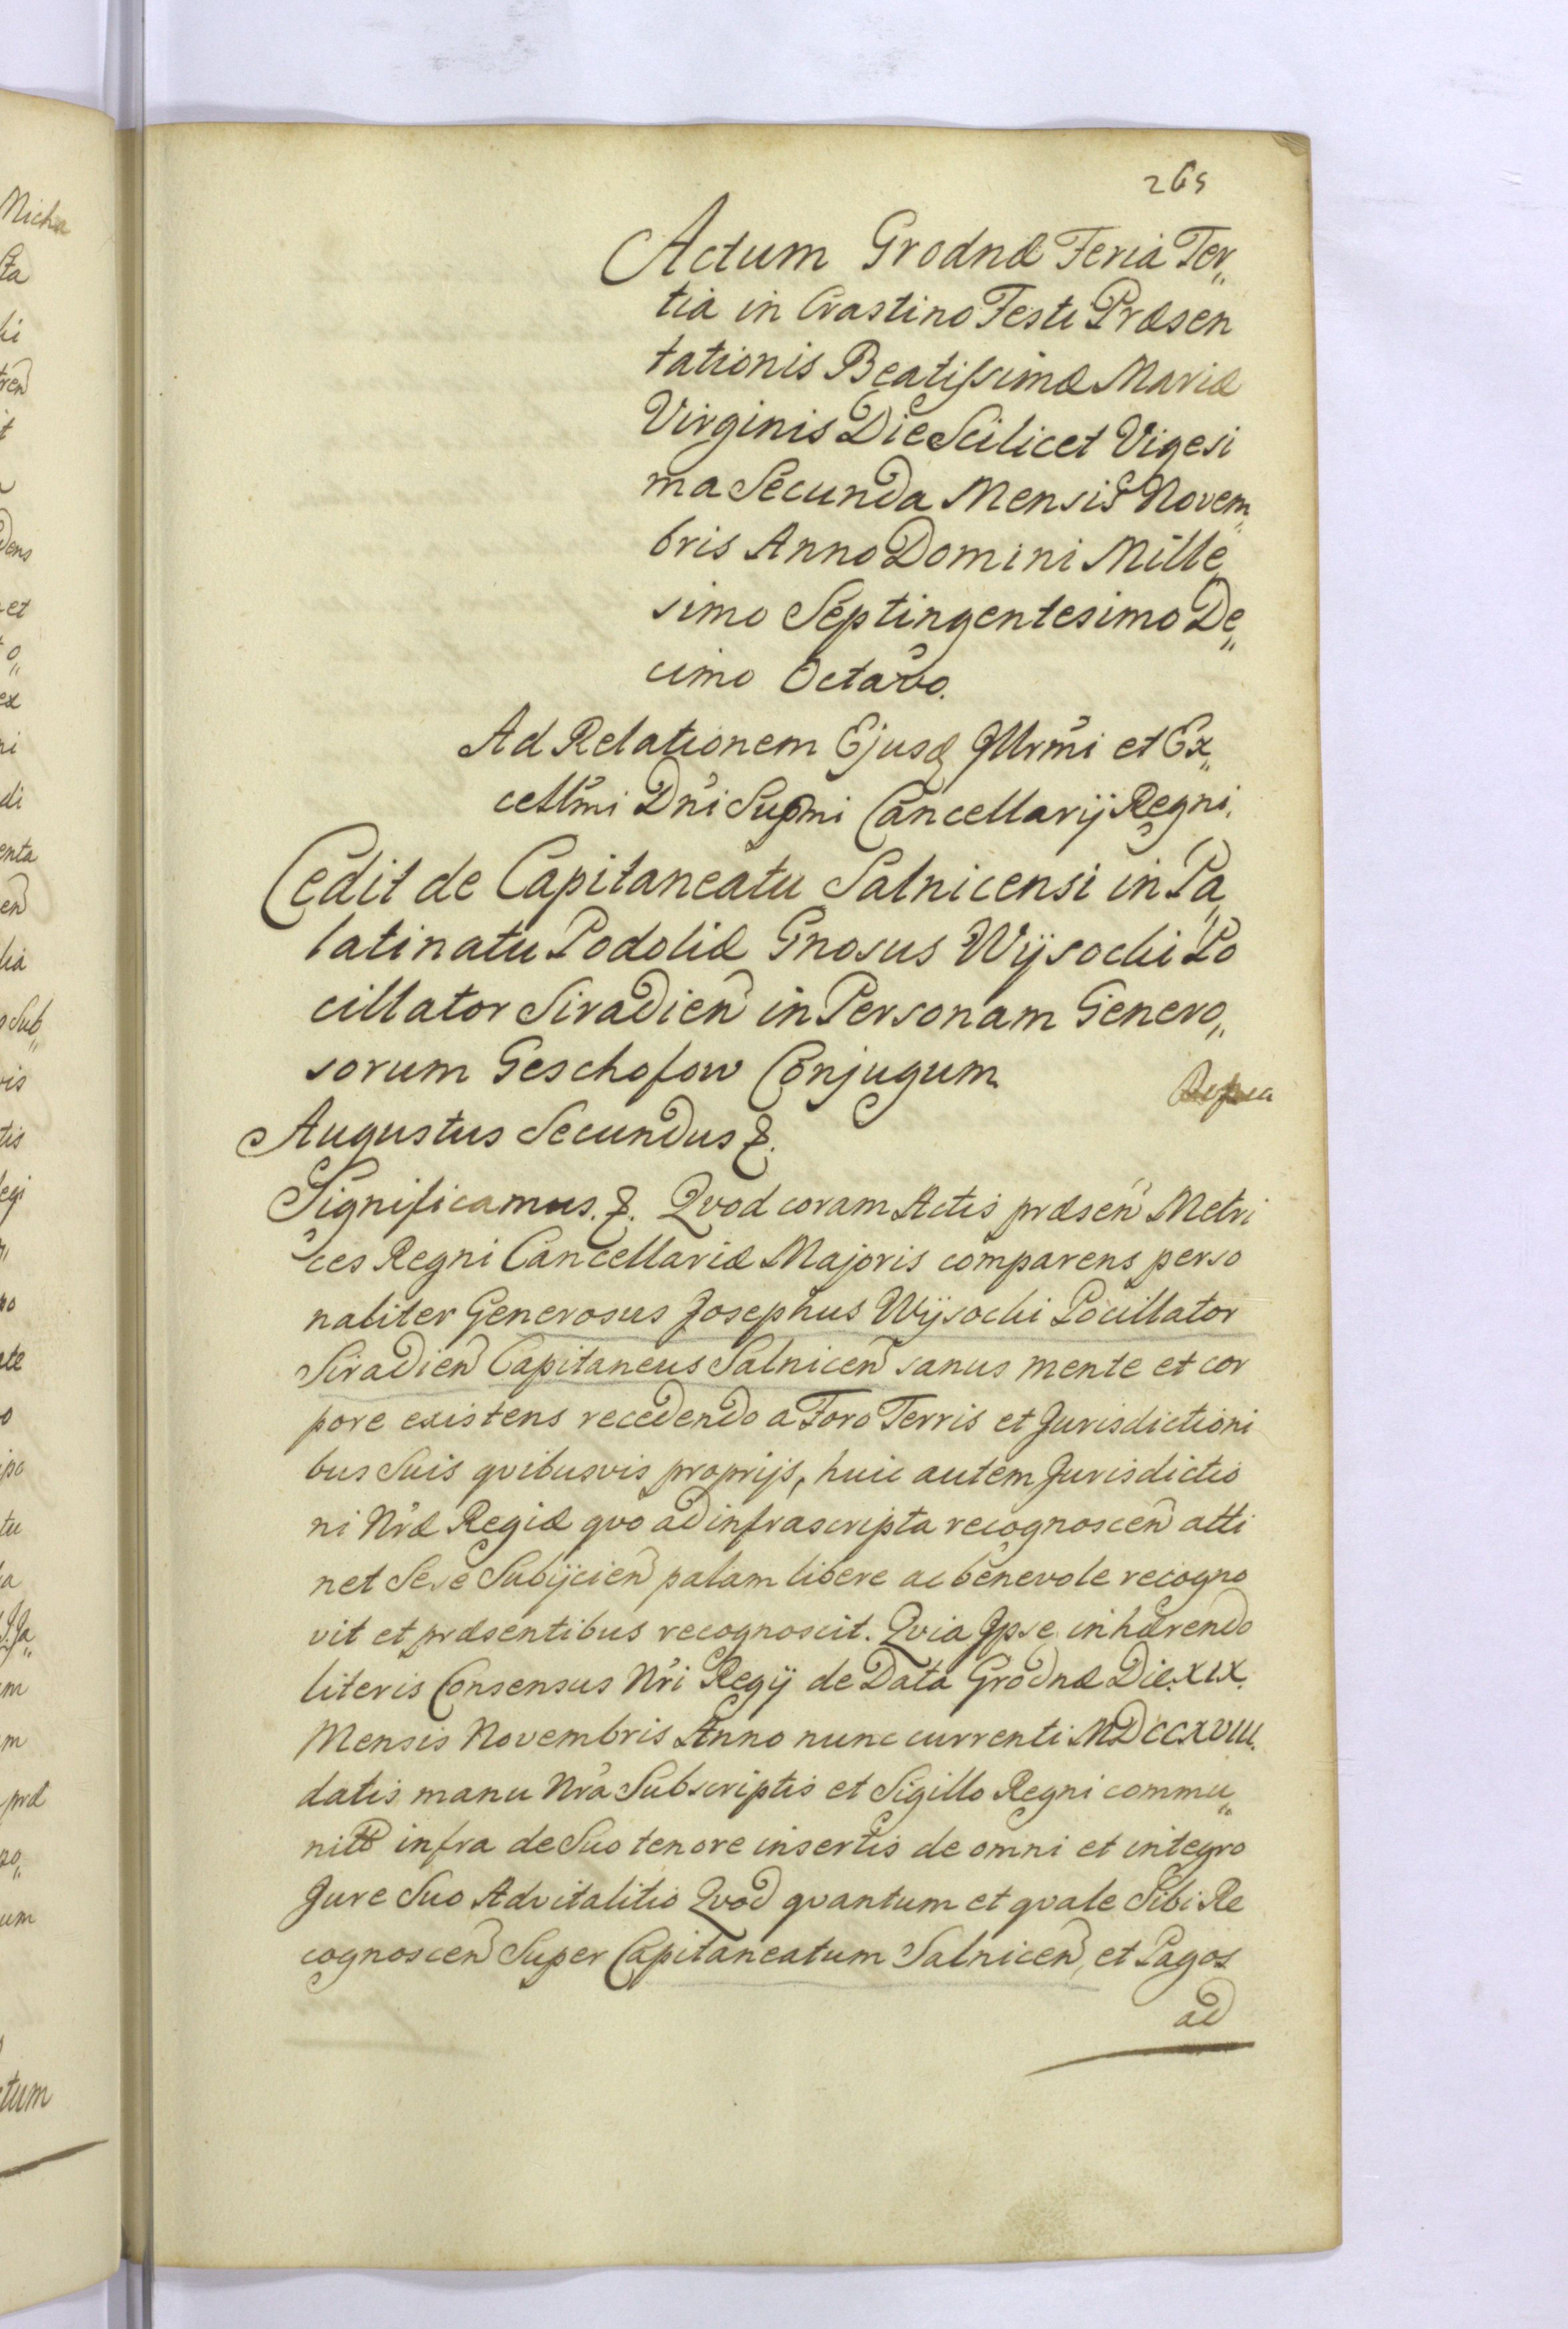 265
Actum Grodnæ Feria Ter„
tia in Crastino Festi Præsen
tationis Beatissimæ Mariæ
Virginis Die Scilicet Vigesi
ma Secunda Mensis Novem„
bris Anno Domini Mille„
simo Septingentesimo De„
cimo Octavo.
Ad Relationem Ejusq Jllrmi et Ex„
cellmi Dni Supmi Cancellarij Regni.
Cedit de Capitaneatu Salnicensi in Pa„
latinatu Podoliæ Gnosus Wÿsocki Po
cillator Siradien in Personam Genero„
sorum Geschofow Conjugum
Augustus Secundus &.
Significamus. &. Qvod coram Actis præsen Metri
ces Regni Cancellariæ Majoris comparens perso
naliter Generosus Josephus Wÿsocki Pocillator
Siradien Capitaneus Salnicen sanus mente et cor
pore existens recedendo a Foro Terris et Jurisdictioni
bus Suis qvibusvis proprijs, huic autem Jurisdictio
ni Nræ Regiæ qvo ad infrascripta recognoscen atti
net Sese Subijcien palam libere ac benevole recogno
vit et præsentibus recognoscit. Qvia Jpse inhærendo
literis Consensus Nri Regÿ de Data Grodnæ Die. XIX.
Mensis Novembris Anno nunc currenti MDCCXVIII.
datis manu Nra Subscriptis et Sigillo Regni commu„
nitt infra de Suo tenore insertis de omni et integro
Jure Suo Advitalitio Qvod qvantum et qvale Sibi Re
cognoscen Super Capitaneatum Salnicen, et Pagos
ad